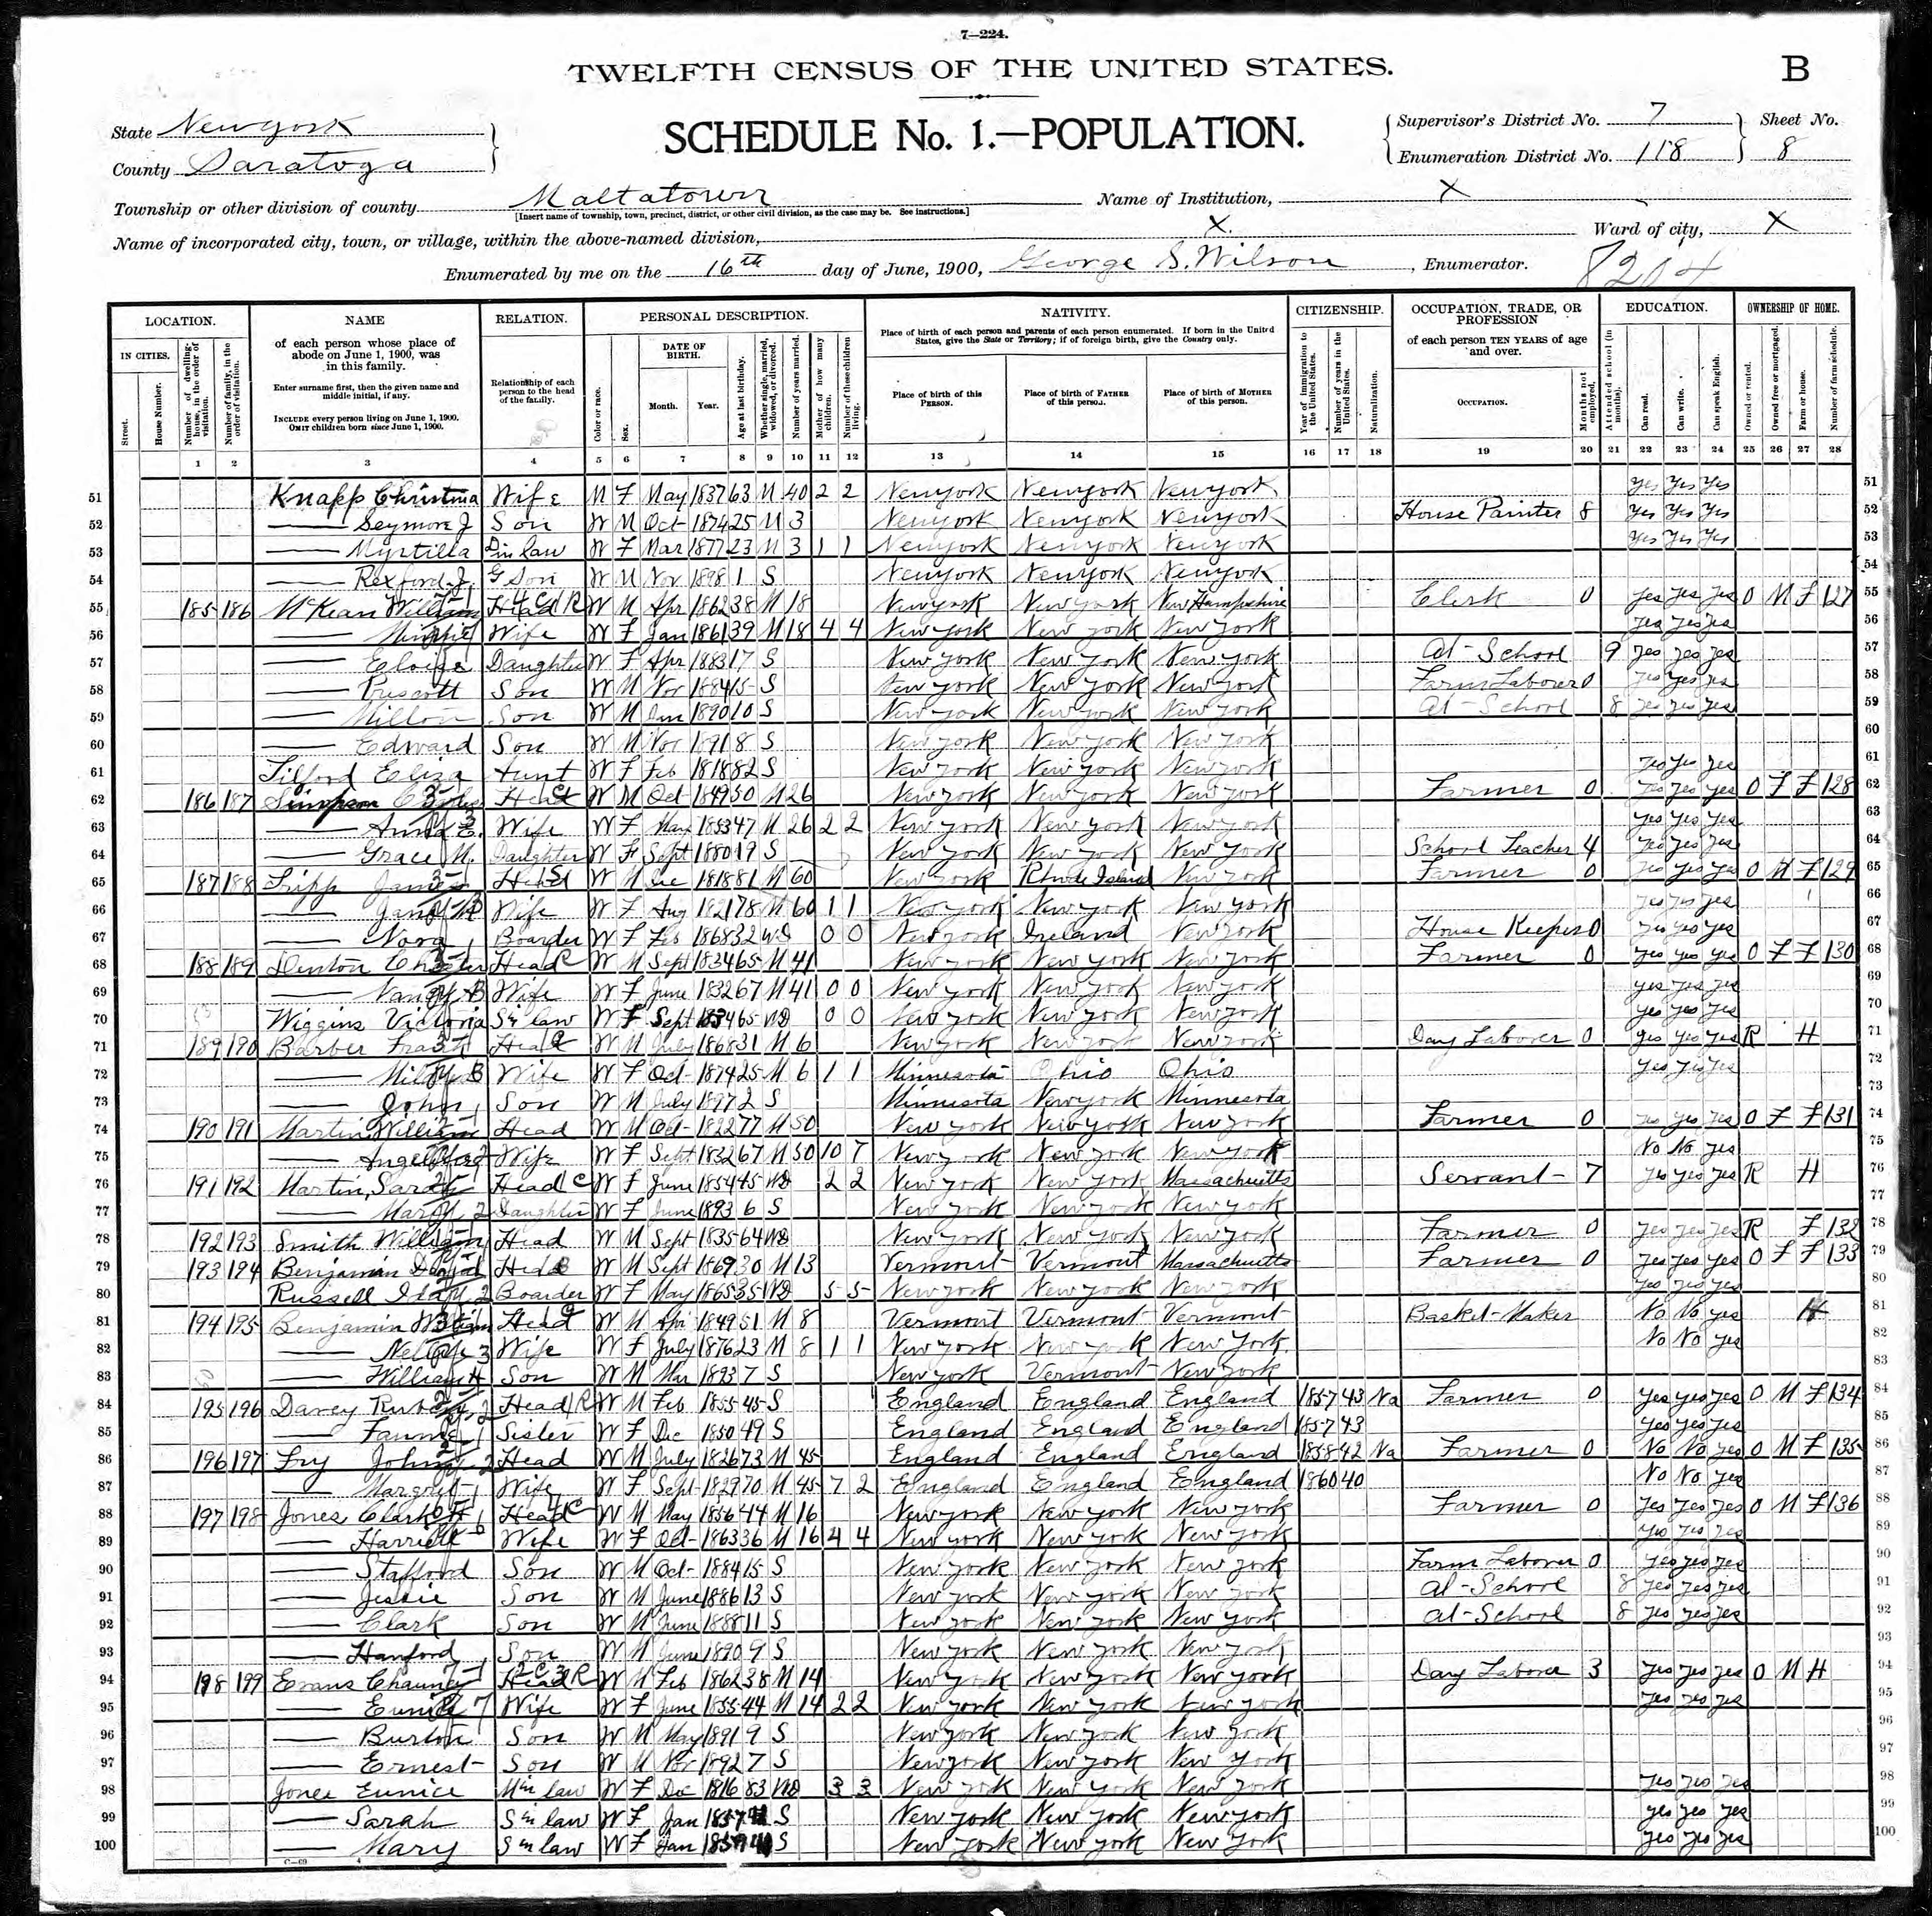 7—224.
TWELFTH CENSUS OF THE UNITED STATES.
B
State New york
SCHEDULE No. 1.—POPULATION.
Supervisor's District No. 7 Sheet No.
County Saratoga
Enumeration District No. 118 8
Township or other division of county Maltatown Name of Institution, X
[Insert name of township, town, precinct, district, or other civil division, as the case may be. See instructions.]
Name of incorporated city, town, or village, within the above-named division, X. Ward of city, X
Enumerated by me on the 16th day of June, 1900, George S. Wilson, Enumerator. 8204
LOCATION. NAME RELATION. PERSONAL DESCRIPTION. NATIVITY. CITIZENSHIP. OCCUPATION, TRADE, OR PROFESSION EDUCATION. OWNERSHIP OF HOME.
IN CITIES. Street. House Number. Number of dwelling-house, in the order of visitation. Number of family, in the order of visitation.
of each person whose place of abode on June 1, 1900, was in this family.
Enter surname first, then the given name and middle initial, if any.
INCLUDE every person living on June 1, 1900. OMIT children born since June 1, 1900.
Relationship of each person to the head of the family.
Color or race. Sex. DATE OF BIRTH. Month. Year. Age at last birthday. Whether single, married, widowed, or divorced. Number of years married. Mother of how many children. Number of these children living.
Place of birth of each person and parents of each person enumerated. If born in the United States, give the State or Territory; if of foreign birth, give the Country only.
Place of birth of this PERSON. Place of birth of FATHER of this person. Place of birth of MOTHER of this person.
Year of immigration to the United States. Number of years in the United States. Naturalization.
of each person TEN YEARS of age and over.
OCCUPATION. Months not employed.
Attended school (in months). Can read. Can write. Can speak English.
Owned or rented. Owned free or mortgaged. Farm or house. Number of farm schedule.
1 2 3 4 5 6 7 8 9 10 11 12 13 14 15 16 17 18 19 20 21 22 23 24 25 26 27 28
51 Knapp Christina Wife F May 1837 63 M 40 2 2 New york New york New york yes yes yes 51
52 — Seymore J Son W M Oct 1874 25 M 3 New york New york New york House Painter 8 yes yes yes 52
53 — Myrtilla D in law W F Mar 1877 23 M 3 1 1 New york New york New york yes yes yes 53
54 — Rexford J. G Son W M Nov 1898 1 S New york New york New york 54
55 185 186 McKean William Head W M Apr 1862 38 M 18 New york New york New Hampshire Clerk 0 yes yes yes O M F 127 55
56 — Minnie Wife W F Jan 1861 39 M 18 4 4 New york New york New york yes yes yes 56
57 — Daughter W F Apr 1883 17 S New york New york New york at School 9 yes yes yes 57
58 — Prescott Son W M Nov 1884 15 S New york New york New york Farm Laborer 0 yes yes yes 58
59 — Milton Son W M 1890 10 S New york New york New york at School 8 yes yes yes 59
60 — Edward Son W M Nov 1891 8 S New york New york New york 60
61 Tilford Eliza Aunt W F Feb 1818 82 S New york New york New york yes yes yes 61
62 186 187 Simpson Head W M Oct 1849 50 M 26 New york New york New york Farmer 0 yes yes yes O F F 128 62
63 — Anna E. Wife W F 1853 47 M 26 2 2 New york New york New york yes yes yes 63
64 — Grace M. Daughter W F Sept 1880 19 S New york New york New york School Teacher 4 yes yes yes 64
65 187 188 Tripp James Head W M Dec 1818 81 M 60 New york Rhode Island New york Farmer 0 yes yes yes O M F 129 65
66 — Wife W F Aug 1821 78 M 60 1 1 New york New york New york yes yes yes 66
67 — Nora Boarder W F Feb 1868 32 Wd 0 0 New york Ireland New york House Keeper 0 yes yes yes 67
68 188 189 Denton Chester Head W M Sept 1834 65 M 41 New york New york New york Farmer 0 yes yes yes O F F 130 68
69 — Nancy B Wife W F June 1832 67 M 41 0 0 New york New york New york yes yes yes 69
70 Wiggins Victoria S in law W F Sept 1834 65 Wd 0 0 New york New york New york yes yes yes 70
71 189 190 Barber Frank Head W M July 1868 31 M 6 New york New york New york Day Laborer 0 yes yes yes R H 71
72 — B Wife W F Oct 1874 25 M 6 1 1 Minnesota Ohio Ohio yes yes yes 72
73 — John Son W M July 1897 2 S Minnesota New york Minnesota 73
74 190 191 Martin William Head W M Oct 1822 77 M 50 New york New york New york Farmer 0 yes yes yes O F F 131 74
75 — Wife W F Sept 1832 67 M 50 10 7 New york New york New york No No yes 75
76 191 192 Martin, Sarah Head W F June 1854 45 Wd 2 2 New york New york Massachusetts Servant 7 yes yes yes R H 76
77 — Daughter W F June 1893 6 S New york New york New york 77
78 192 193 Smith William Head W M Sept 1835 64 Wd New york New york New york Farmer 0 yes yes yes R F 132 78
79 193 194 Benjamin Head W M Sept 1869 30 M 13 Vermont Vermont Massachusetts Farmer 0 yes yes yes O F F 133 79
80 Russell Ida Boarder W F May 1865 35 Wd 5 5 New york New york New york yes yes yes 80
81 194 195 Benjamin William Head W M Apr 1849 51 M 8 Vermont Vermont Vermont Basket Maker No No yes H 81
82 — Wife W F July 1876 23 M 8 1 1 New york New york New York No No yes 82
83 — William H Son W M Mar 1893 7 S New york Vermont New york 83
84 195 196 Davey Head W M Feb 1855 45 S England England England 1857 43 Na Farmer 0 yes yes yes O M F 134 84
85 — Fannie Sister W F Dec 1850 49 S England England England 1857 43 yes yes yes 85
86 196 197 Fry John Head W M July 1826 73 M 45 England England England 1858 42 Na Farmer 0 No No yes O M F 135 86
87 — Margret Wife W F Sept 1829 70 M 45 7 2 England England England 1860 40 No No yes 87
88 197 198 Jones Clark H Head W M May 1856 44 M 16 New york New york New york Farmer 0 yes yes yes O M F 136 88
89 — Harriett Wife W F Oct 1863 36 M 16 4 4 New york New york New york yes yes yes 89
90 — Stafford Son W M Oct 1884 15 S New york New york New york Farm Laborer 0 yes yes yes 90
91 — Jessie Son W M June 1886 13 S New york New york New york at School 8 yes yes yes 91
92 — Clark Son W M June 1888 11 S New york New york New york at School 8 yes yes yes 92
93 — Hanford Son W M June 1890 9 S New york New york New york 93
94 198 199 Evans Chauncy Head W M Feb 1862 38 M 14 New york New york New york Day Laborer 3 yes yes yes O M H 94
95 — Eunice Wife W F June 1855 44 M 14 2 2 New york New york New york yes yes yes 95
96 — Burton Son W M May 1891 9 S New york New york New york 96
97 — Ernest Son W M Nov 1892 7 S New york New york New york 97
98 Jones Eunice M in law W F Dec 1816 83 Wd 3 3 New york New york New york yes yes yes 98
99 — Sarah S in law W F Jan 1857 S New york New york New york yes yes yes 99
100 — Mary S in law W F Jan 1859 S New york New york New york yes yes yes 100